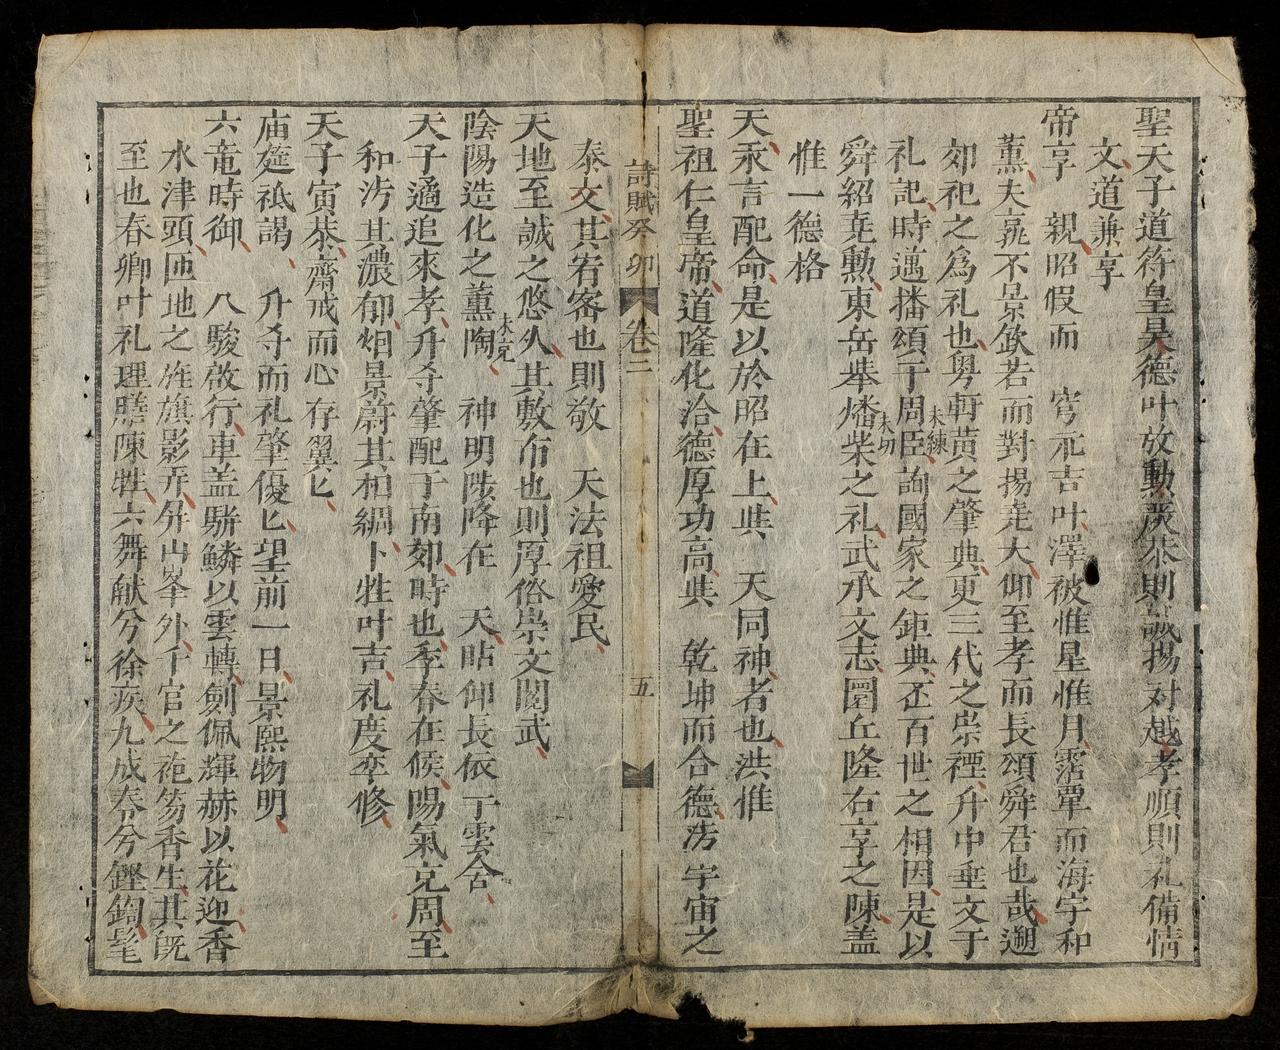 聖天子道符皇昊德叶放勳蕆恭則誠揚对越孝順則礼備情
文道兼享
帝享 親昭假而 穹元吉叶澤被惟星惟月霑覃而海宇和
薰夫孰不景欽若而對揚尭大仰至孝而長頌舜君也哉遡
郊祀之爲礼也粤軒黄之肇典更三代之崇禋升中垂文于
礼記時邁播頌于周臣詢國家之鉅典丕百世之相因是以
舜紹尭勳東岳举燔柴之礼武承文志圜丘隆右享之陳盖
惟一德格
天永言配命是以於昭在上与 天同神者也洪惟
聖祖仁皇帝道隆化洽德厚功高与 乾坤而合德 宇宙之
詩賦癸卯 卷二 五
泰文其宥宻也則敬 天法祖愛民
天地至誠之悠久其敷布也則厚俗崇文閱武
陰陽造化之薫陶 神明陟降在 天占仰長依于雲令
天子遹追來孝升 肇配于南郊時也季春在候陽氣充周至
和 其濃郁烟景蔚其 綢卜牲叶吉礼度李修
天子寅恭齋戒而心存翼匕
庙筵祗謁 升 而礼肇優匕望前一日景熙物明
六竜時御 八駿啟行車盖駢鱗以雲轉劍佩輝赫以花迎香
水津頭匝地之旌旗影弄 山峯外千官之袍笏香生其旣
至也春卿叶礼理膳陳牲六舞献兮徐疾九成奏兮鏗鍧髦